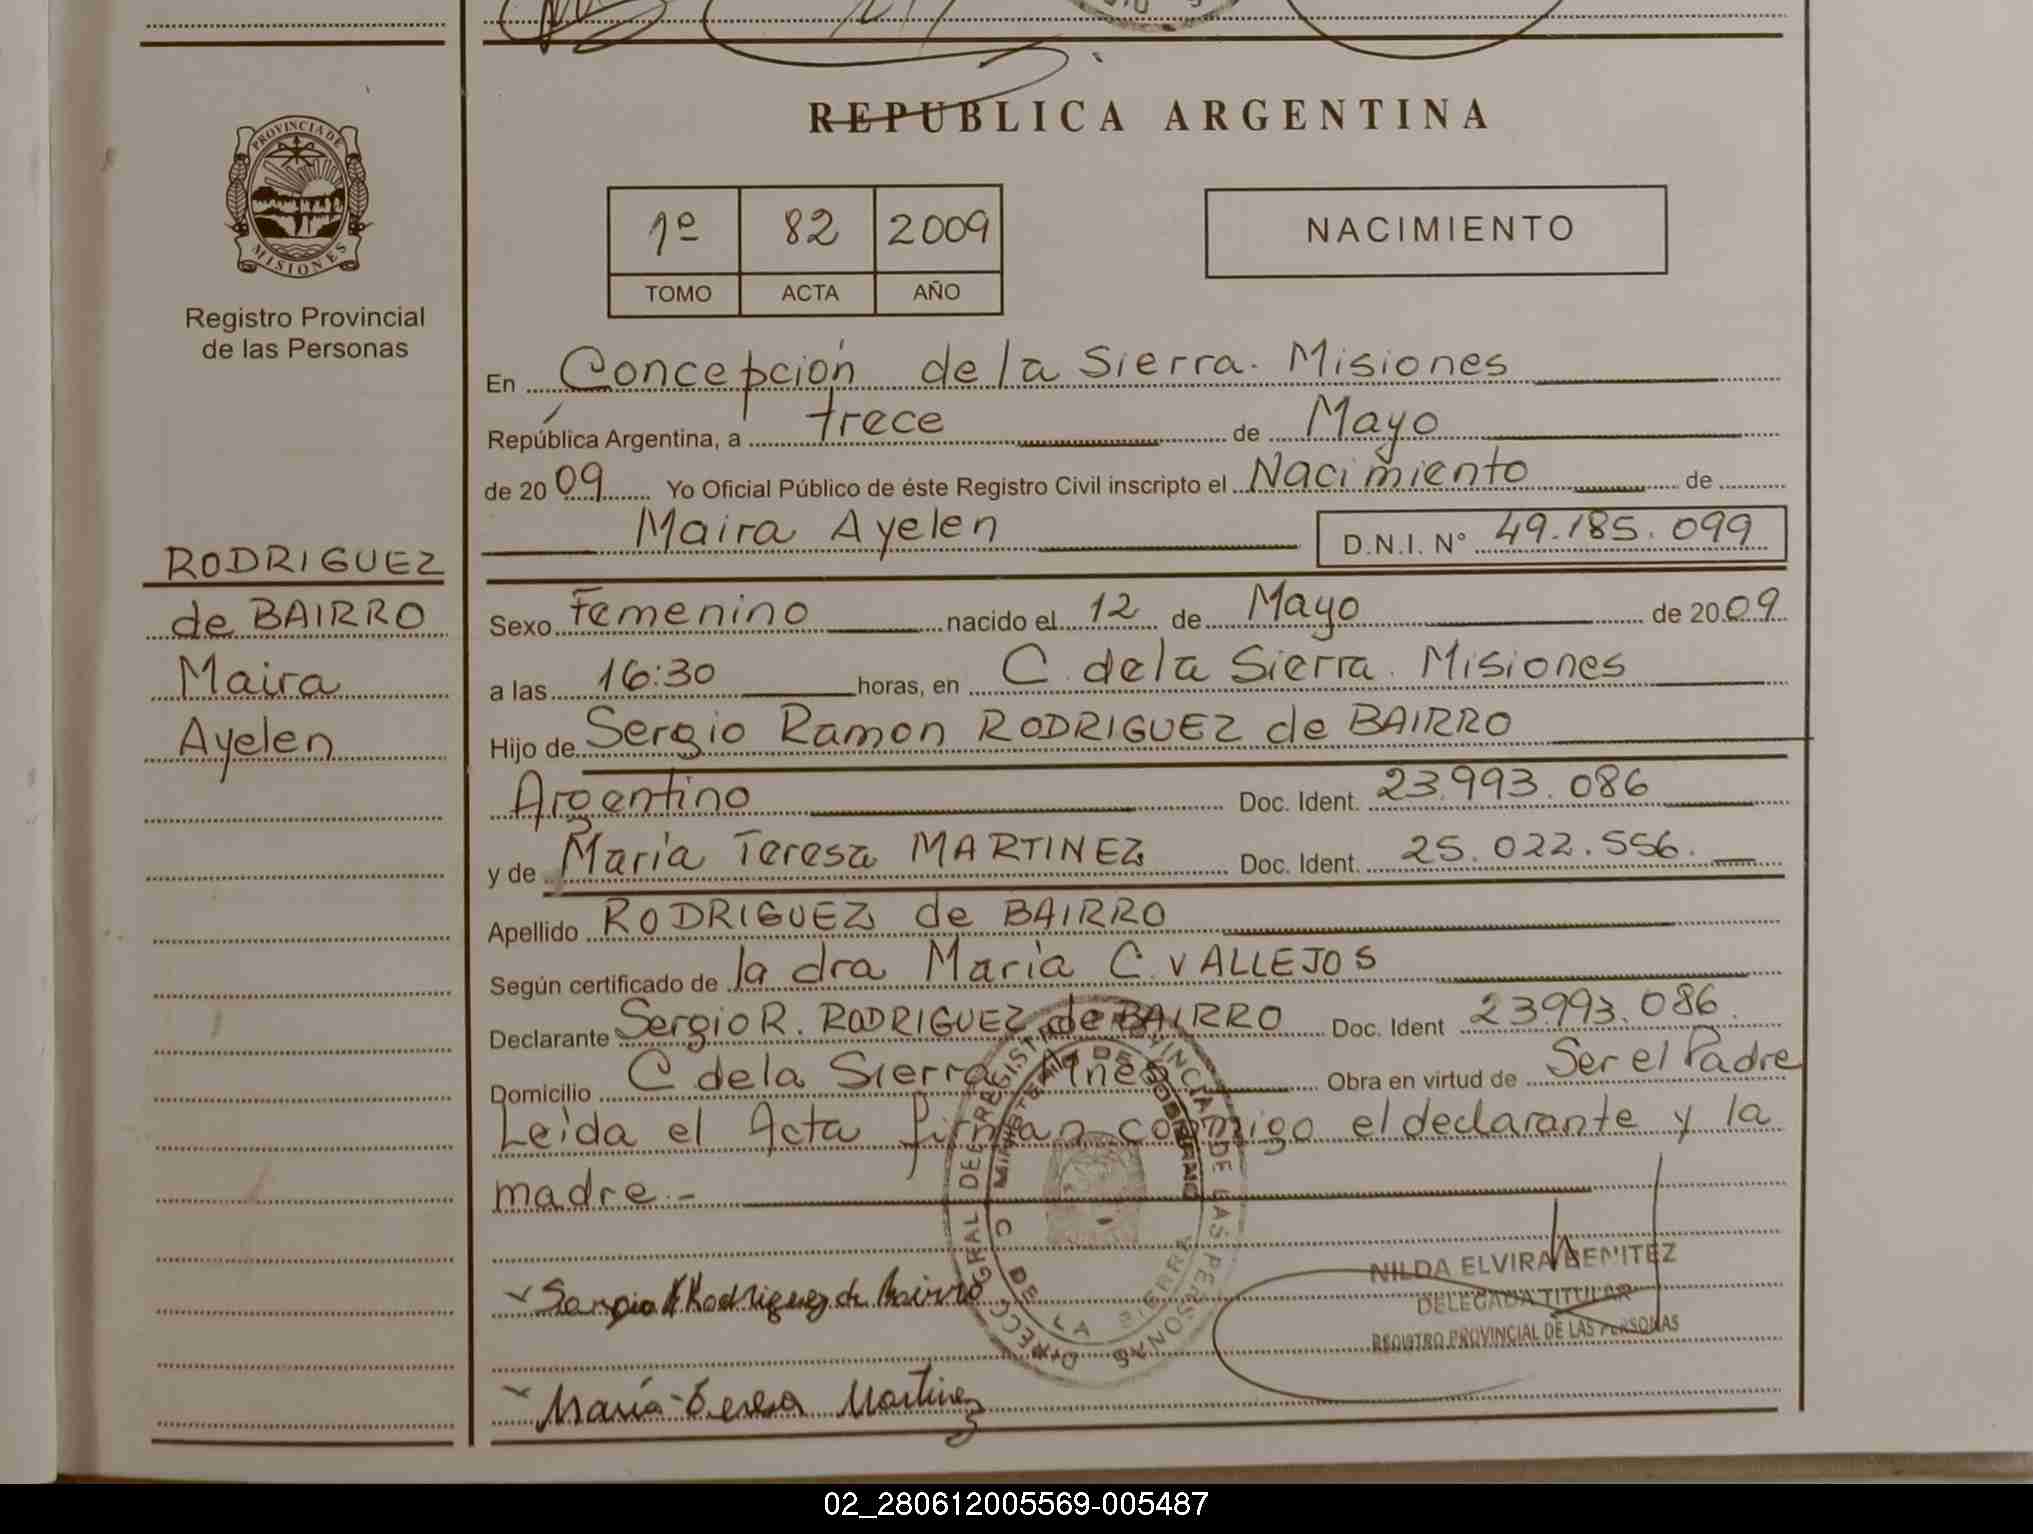 REPUBLICA ARGENTINA
PROVINCIA DE
MISIONES
Registro Provincial
de las Personas
1º 82 2009
TOMO ACTA AÑO
NACIMIENTO
En Concepción de la Sierra. Misiones
República Argentina, a trece de Mayo
de 2009 Yo Oficial Público de éste Registro Civil inscripto el Nacimiento de
Maira Ayelen D.N.I. Nº 49.185.099
RODRIGUEZ
de BAIRRO
Maira
Ayelen
Sexo Femenino nacido el 12 de Mayo de 2009
a las 16:30 horas, en C. de la Sierra. Misiones
Hijo de Sergio Ramon RODRIGUEZ de BAIRRO
Argentino Doc. Ident. 23.993.086
y de María Teresa MARTINEZ Doc. Ident. 25.022.556.
Apellido RODRIGUEZ de BAIRRO
Según certificado de la dra María C. VALLEJOS
Declarante Sergio R. RODRIGUEZ de BAIRRO Doc. Ident 23993.086.
Domicilio C de la Sierra Obra en virtud de Ser el Padre
Leída el Acta firman conmigo el declarante y la
madre.-
DIRECC. GRAL DEL REGISTRO PROVINCIAL DE LAS PERSONAS
MINISTERIO DE GOBIERNO
C DE LA SIERRA
Sergio R Rodriguez de Bairro
NILDA ELVIRA BENITEZ
DELEGADA TITULAR
REGISTRO PROVINCIAL DE LAS PERSONAS
María Teresa Martinez
02_280612005569-005487